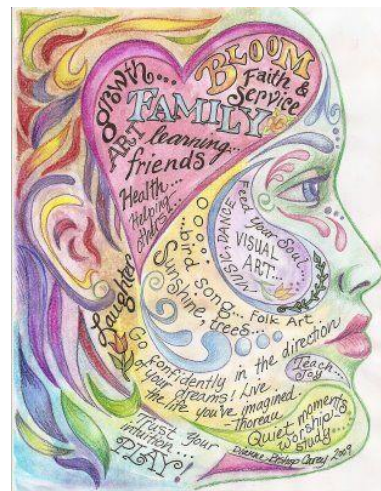 Growth...
BLOOM
Faith &
Service
FAMILY
ART
learning...
friends
Health...
Helping
others!...
Laughter
MUSIC-DANCE
Feed Your Soul...
VISUAL
ART...
...bird song...
Sunshine, trees...
Folk Art
Go confidently in the direction
of your dreams! Live
the life you've imagined.
-Thoreau
Teach...
Joy
Trust your
intuition...
PLAY!
Quiet moments
Worship-
study...
Dianne Bishop Carey 2009